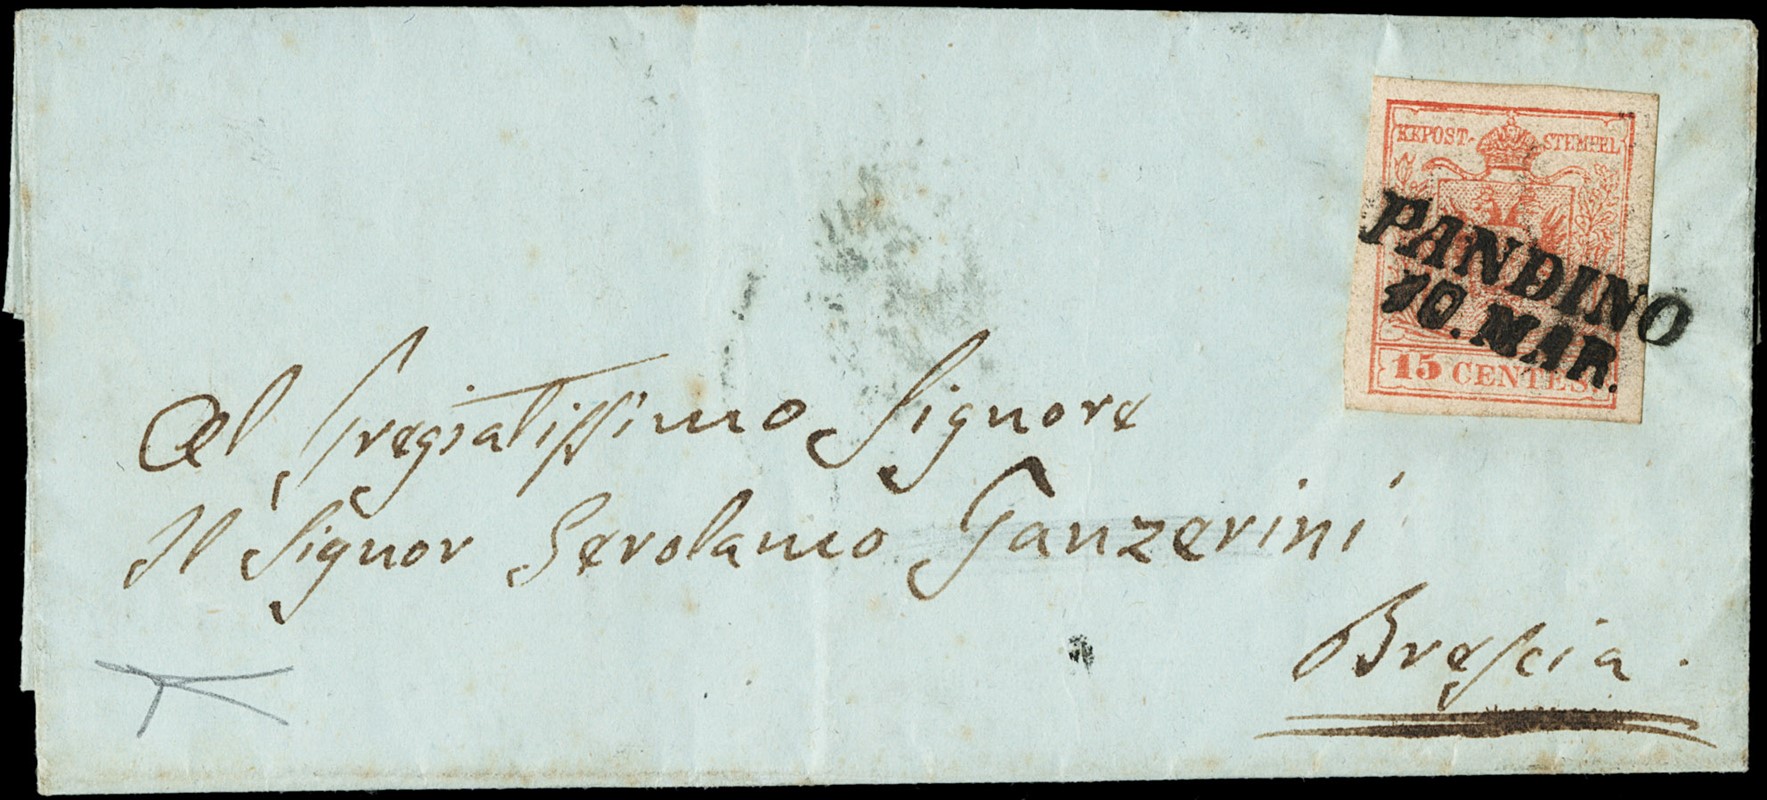 KKPOST-STEMPEL
PANDINO
10. MAR.
15 CENTES
Al Pregiatissimo Signore
Il Signor Gerolamo Ganzerini
Brescia.